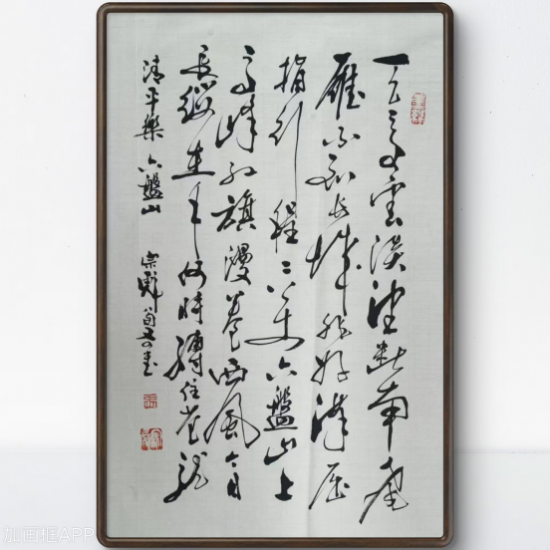 天高雲淡望断南飛
雁不到长城非好漢屈
指行程二萬六盤山上
高峰红旗漫卷西風今日
长缨在手何時縛住苍龙
清平樂 六盤山 宗
加画框APP